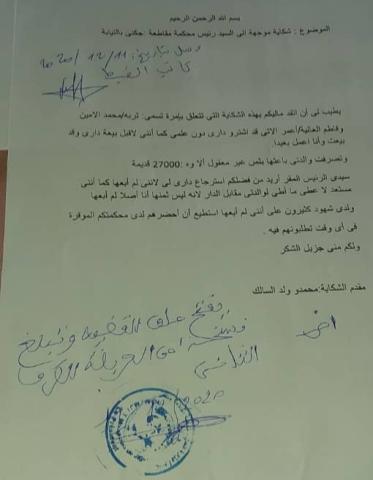 بسم الله الرحمن الرحيم
الموضوع : شكاية موجهة الى السيد رئيس محكمة مقاطعة :جكني بالنيابة
وصل بتاريخ: 2020/12/11
كاتب الضبط
يطيب لى أن اتقد ماليكم بهذه الشكاية التي تتعلق بإمرة تسمى: تربه/محمد الامين
وفاطم الغالية/أعمر الاتى قد اشترو دارى دون علمى كما أننى لاقبل بيعة دارى وقد
بيعت وأنا اعمل بعيدا.
وتصرفت والدتى باعتها بثمن غير معقول ألا وه :27000 قديمة
سيدى الرئيس المقر أريد من فضلكم استرجاع دارى لى لاننى لم أبعها كما أننى
مستعد لا عطى ما أطى لوالدتى مقابل الدار لانه ليس ثمنها أنا أصلا لم أبعها
ولدى شهود كثيرون على أننى لم أبعها استطيع أن أحضرهم لدى محكمتكم الموقرة
فى أى وقت تطلبونهم فيه .
ولكم منى جزيل الشكر
مقدم الشكاية:محمدو ولد السالك
يفتح ملف القضية وتبلغ
القاضي
2020